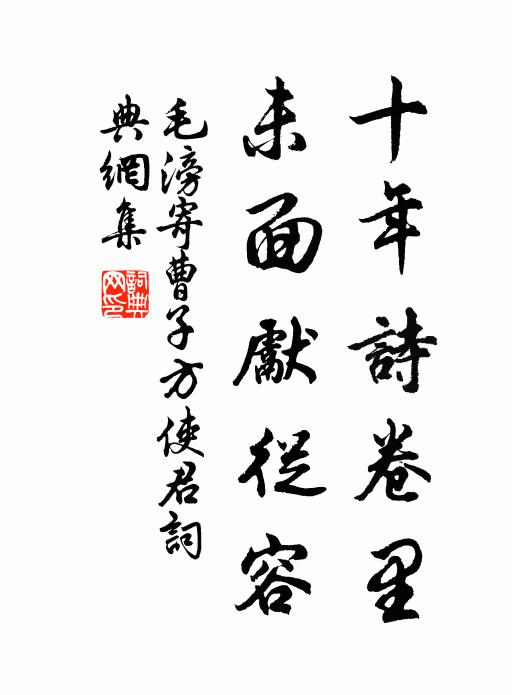 十年詩卷里
未面獻從容
毛滂寄曹子方使君詞
典網集
詞典網印